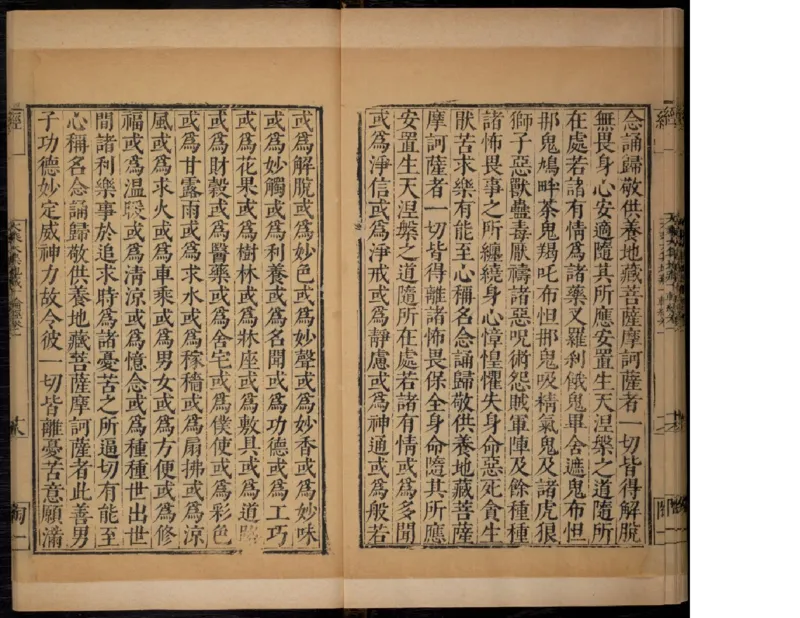 念誦歸敬供養地藏菩薩摩訶薩者一切皆得解脫
無畏身心安適隨其所應安置生天涅槃之道隨所
在處若諸有情為諸藥叉羅刹餓鬼畢舍遮鬼布怛
那鬼鳩畔茶鬼羯吒布怛那鬼吸精氣鬼及諸虎狼
獅子惡獸蠱毒厭禱諸惡呪術怨賊軍陣及餘種種
諸怖畏事之所纏繞身心慞惶懼失身命惡死貪生
厭苦求樂有能至心稱名念誦歸敬供養地藏菩薩
摩訶薩者一切皆得離諸怖畏保全身命隨其所應
安置生天涅槃之道隨所在處若諸有情或為多聞
或為淨信或為淨戒或為靜慮或為神通或為般若
或為解脫或為妙色或為妙聲或為妙香或為妙味
或為妙觸或為利養或為名聞或為功德或為工巧
或為花果或為樹林或為牀座或為敷具或為道
或為財穀或為醫藥或為舍宅或為僕使或為彩色
或為甘露雨或為求水或為稼穡或為扇拂或為涼
風或為求火或為車乘或為男女或為方便或為修
福或為温暖或為清涼或為憶念或為種種世出世
間諸利樂事於追求時為諸憂苦之所逼切有能至
心稱名念誦歸敬供養地藏菩薩摩訶薩者此善男
子功德妙定威神力故令彼一切皆離憂苦意願滿